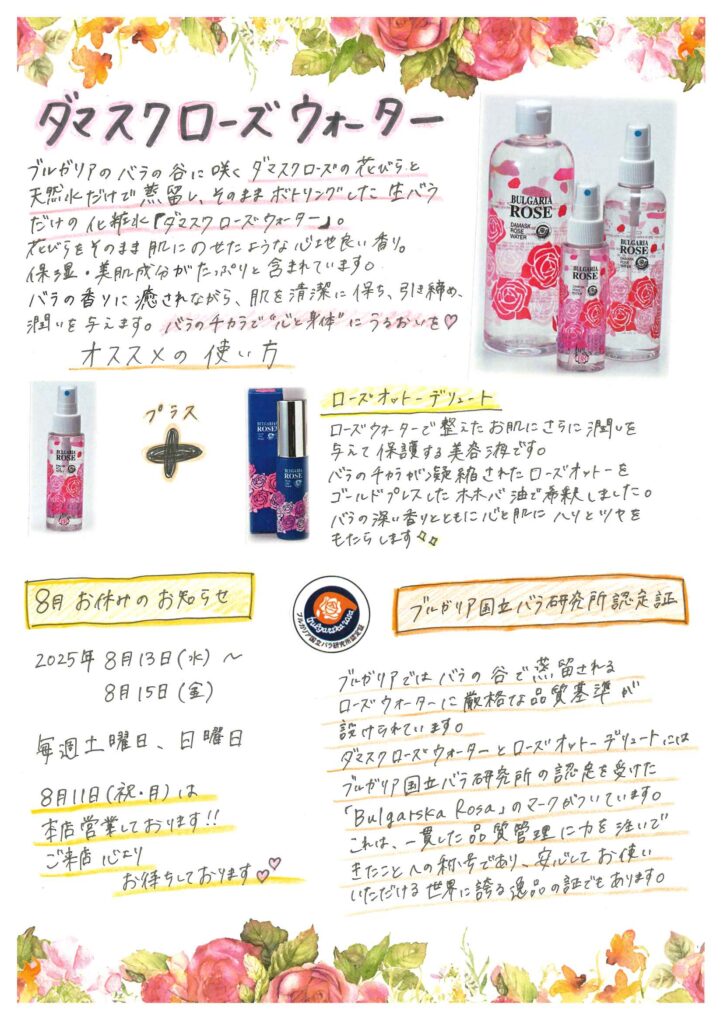 ダマスクローズウォーター
ブルガリアのバラの谷に咲くダマスクローズの花びらと
天然水だけで蒸留し、そのままボトリングした生バラ
だけの化粧水『ダマスクローズウォーター』。
花びらをそのまま肌にのせたような心地良い香り。
保湿・美肌成分がたっぷりと含まれています。
バラの香りに癒されながら、肌を清潔に保ち、引き締め、
潤いを与えます。バラのチカラで"心と身体"にうるおいを♡
オススメの使い方
BULGARIA
ROSE
DAMASK
ROSE
WATER
BULGARIA
ROSE
BULGARIA
ROSE
BULGARIA
ROSE
プラス
+
BULGARIA
ROSE
ローズオットーデリュート
ローズウォーターで整えたお肌にさらに潤いを
与えて保護する美容液です。
バラのチカラが凝縮されたローズオットーを
ゴールドプレスしたホホバ油で希釈しました。
バラの深い香りとともに心と肌にハリとツヤを
もたらします
8月 お休みのお知らせ
2025年 8月13日(水) ~
8月15日(金)
毎週土曜日、日曜日
8月11日(祝・月)は
本店営業しております!!
ご来店心より
お待ちしております♡♡
bulgarska rosa
ブルガリア国立バラ研究所認定証
ブルガリア国立バラ研究所認定証
ブルガリアではバラの谷で蒸留される
ローズウォーターに厳格な品質基準が
設けられています。
ダマスクローズウォーターとローズオットーデリュートには
ブルガリア国立バラ研究所の認定を受けた
「Bulgarska Rosa」のマークがついています。
これは、一貫した品質管理に力を注いで
きたことへの称号であり、安心してお使い
いただける世界に誇る逸品の証でもあります。